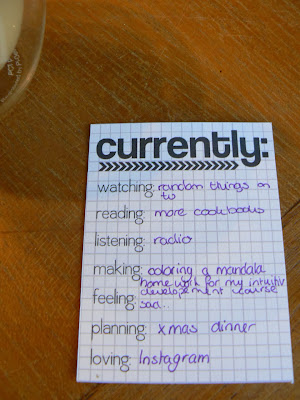 currently:
watching: random things on
tv
reading: more cookbooks
listening: radio
making: coloring a mandala
homework for my intuitiv
development course
feeling: sad..
planning: xmas dinner
loving: Instagram